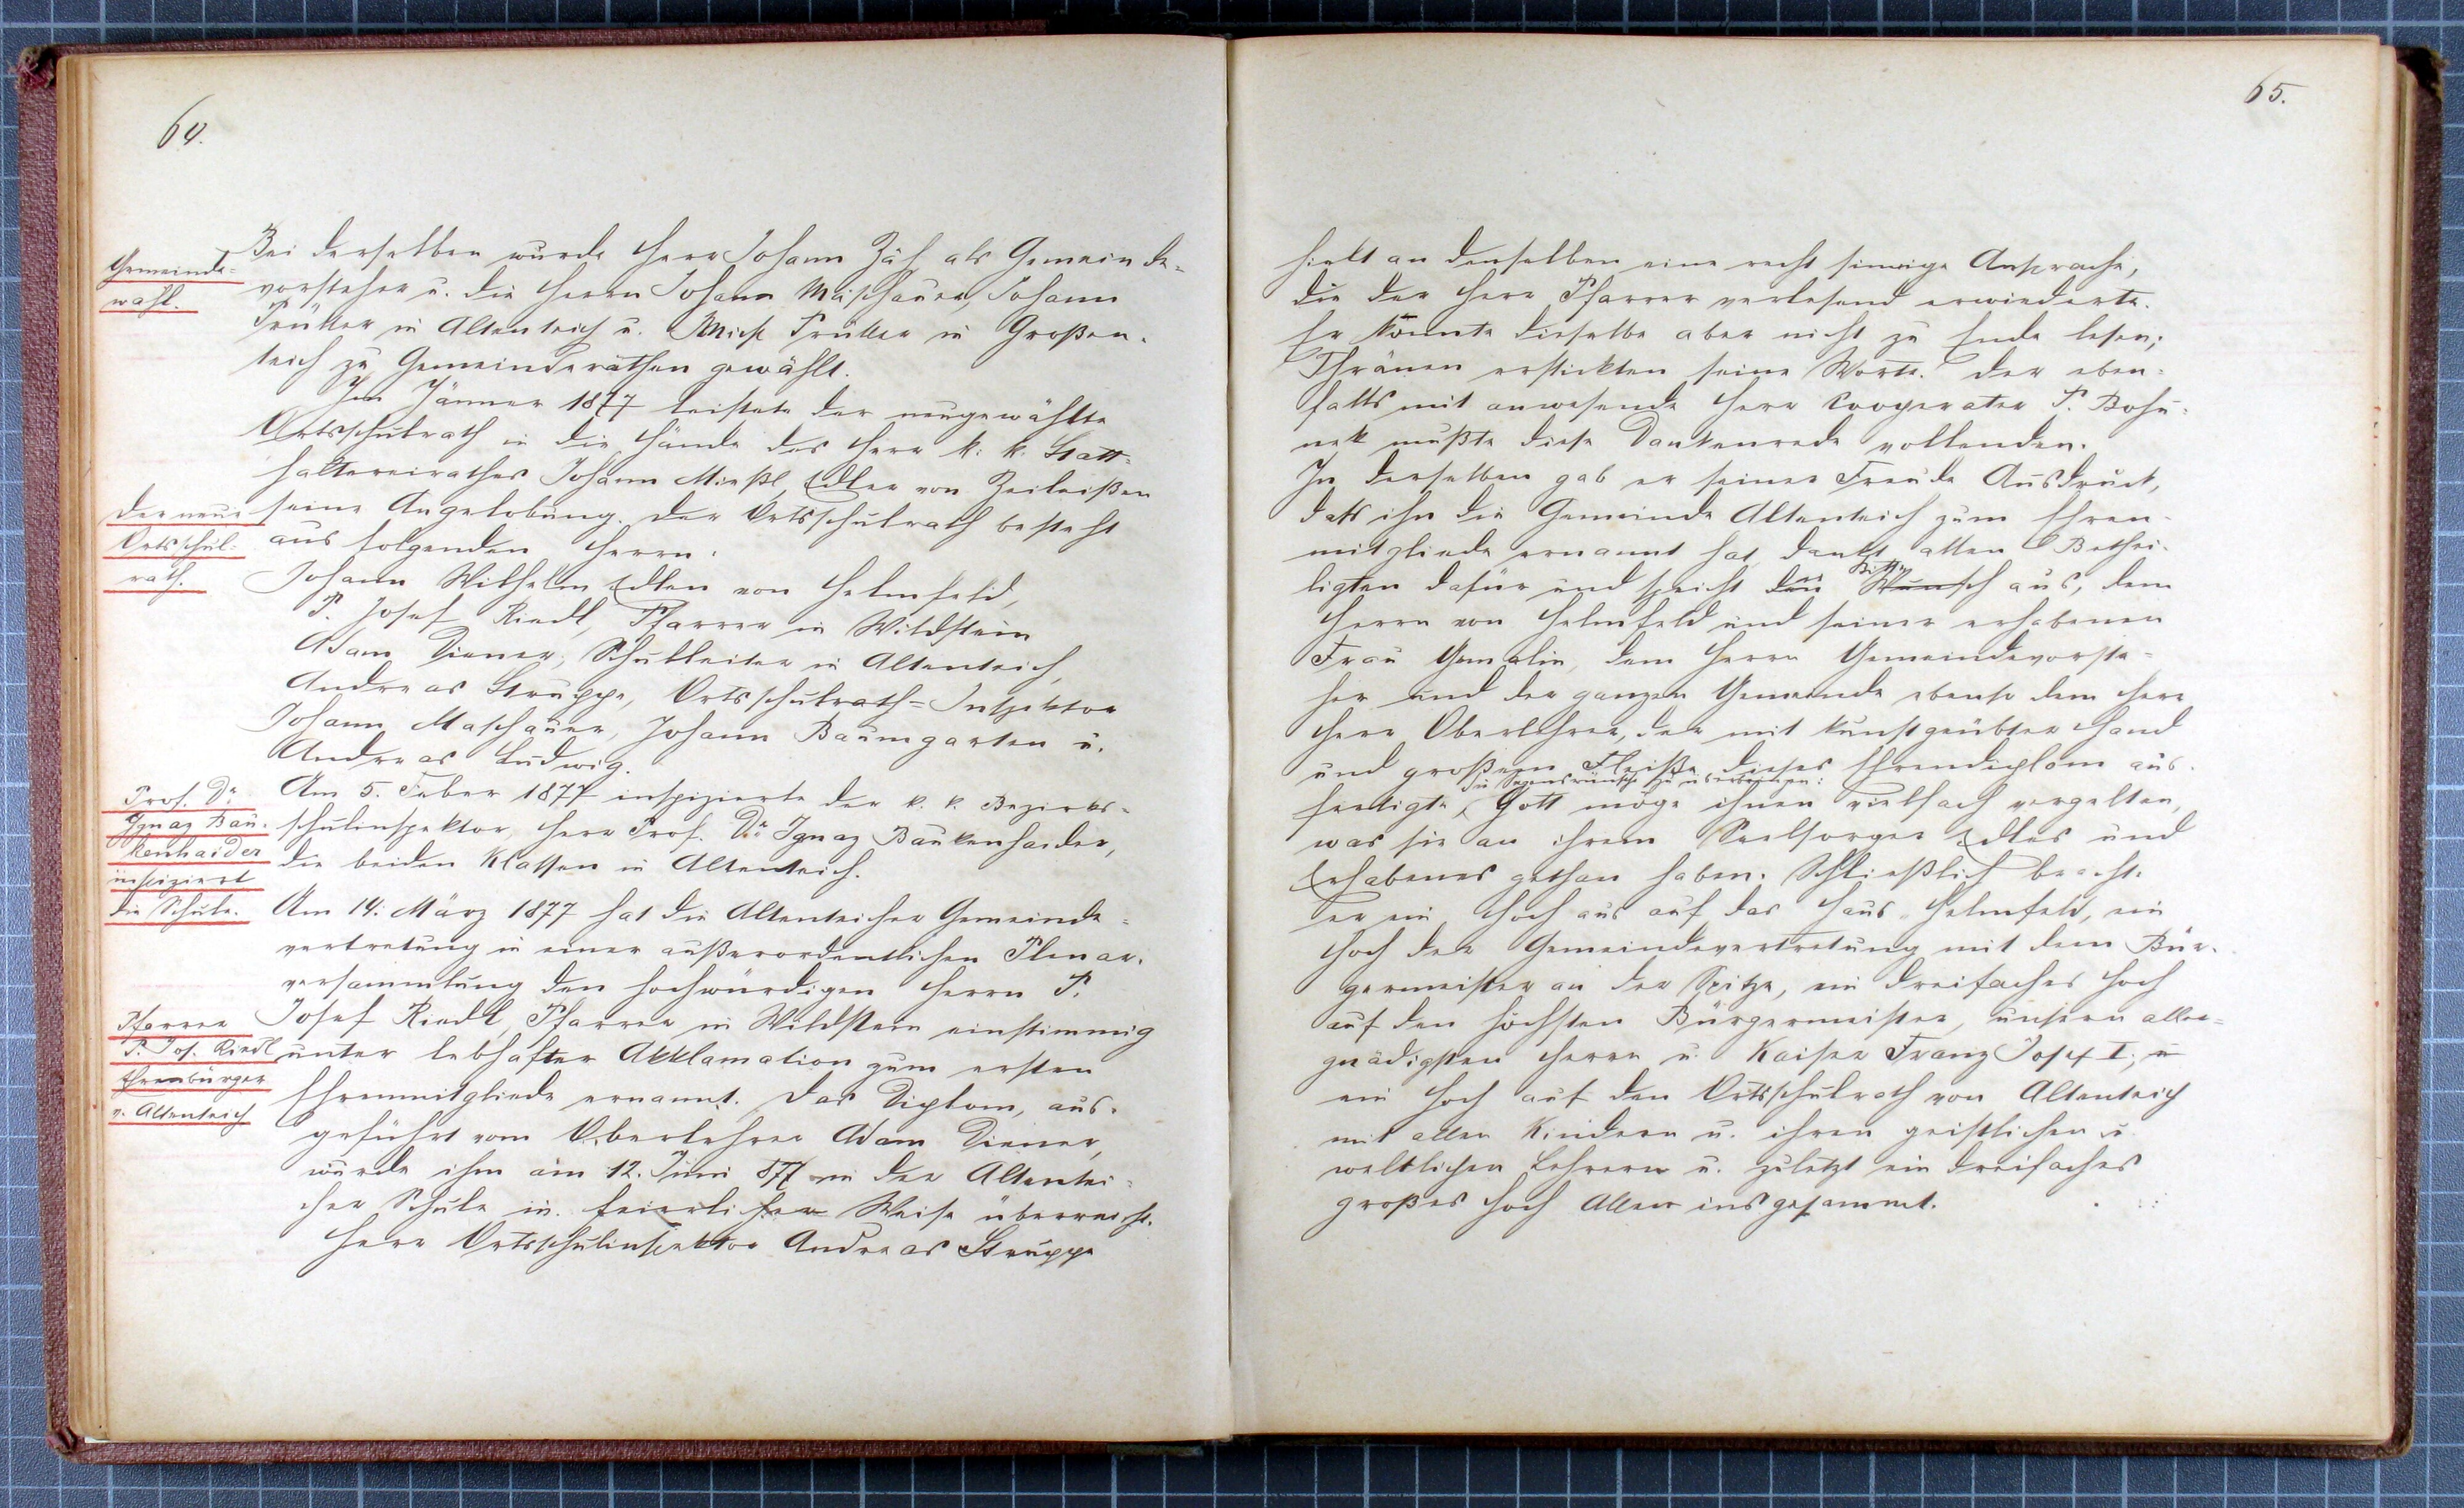 64.
Gemeinde-
wahl.
Bei derselben wurde Herr Johann Zäh als Gemeinde-
vorsteher u. die Herrn Johann Maschauer, Johann
Trütter in Altenteich u. Mich Trütter in Großen-
teich zu Gemeinderäthen gewählt.
Im Jänner 1877 leistete der neugewählte
Ortsschulrath in die Hände des Herr k. k. Statt-
haltereirathes Johann Mießl, Edler von Zeileißen
Der neue
Ortsschul-
rath.
seine Angelobung. Der Ortsschulrath besteht
aus folgenden Herrn:
Johann Wilhelm Edlen von Helmfeld,
P. Josef Riedl, Pfarrer in Wildstein
Adam Diener, Schulleiter in Altenteich,
Andreas Struppe, Ortsschulrath-Inspektor
Johann Maschauer, Johann Baumgarten u.
Andreas Ludwig.
Prof. Dr.
Ignaz Bau-
kenhaider
inspiziert
die Schule.
Am 5. Feber 1877 inspizierte der k. k. Bezirks-
schulinspektor, Herr Prof. Dr. Ignaz Baukenhaider,
die beiden Klassen in Altenteich.
Am 14. März 1877 hat die Altenteicher Gemeinde-
vertretung in einer außerordentlichen Plenar-
versammlung den hochwürdigen Herrn P.
Pfarrer
P. Jos. Riedl
Ehrenbürger
v. Altenteich
Josef Riedl, Pfarrer in Wildstein einstimmig
unter lebhafter Akklamation zum ersten
Ehrenmitgliede ernannt. Das Diplom, aus-
geführt vom Oberlehrer Adam Diener,
wurde ihm am 12. Juni 877 in der Altentei-
cher Schule in feierlicher Weise überreicht.
Herr Ortsschulinspektor Andreas Struppe
65.
hielt an denselben eine recht sinnige Ansprache,
die der Herr Pfarrer verlesend erwiederte.
Er konnte dieselbe aber nicht zu Ende lesen;
Thränen erstickten seine Worte. Der eben-
falls mit anwesende Herr Cooperator P. Bohu-
nek mußte diese Dankenrede vollenden.
In derselben gab er seiner Freude Ausdruck,
daß ihn die Gemeinde Altenteich zum Ehren-
mitgliede ernannt hat, dankt allen Bethei-
ligten dafür und spricht den Wunsch Bitte aus, dem
Herrn von Helmfeld und seiner erhabenen
Frau Gemalin, dem Herrn Gemeindevorste-
her und der ganzen Gemeinde ebenso dem Herr
Herr Oberlehrer, der mit kunstgeübter Hand
und großem Fleiße dieses Ehrendiplom aus-
fertigte, Gott möge ihnen vielfach vergelten,
was sie an ihrem Seelsorger Edles und
Erhabenes gethan haben. Schließlich bracht
er ein Hoch aus auf das Haus Helmfeld, ein
Hoch der Gemeindevertretung mit dem Bür-
germeister an der Spitze, ein dreifaches Hoch
auf den höchsten Bürgermeister, unsern aller-
gnädigsten Herrn u. Kaiser Franz Josef I, u
ein Hoch auf den Ortsschulrath von Altenteich
mit allen Kindern u. ihren geistlichen u.
weltlichen Lehrern u. zuletzt ein dreifaches
großes Hoch Allen insgesammt.